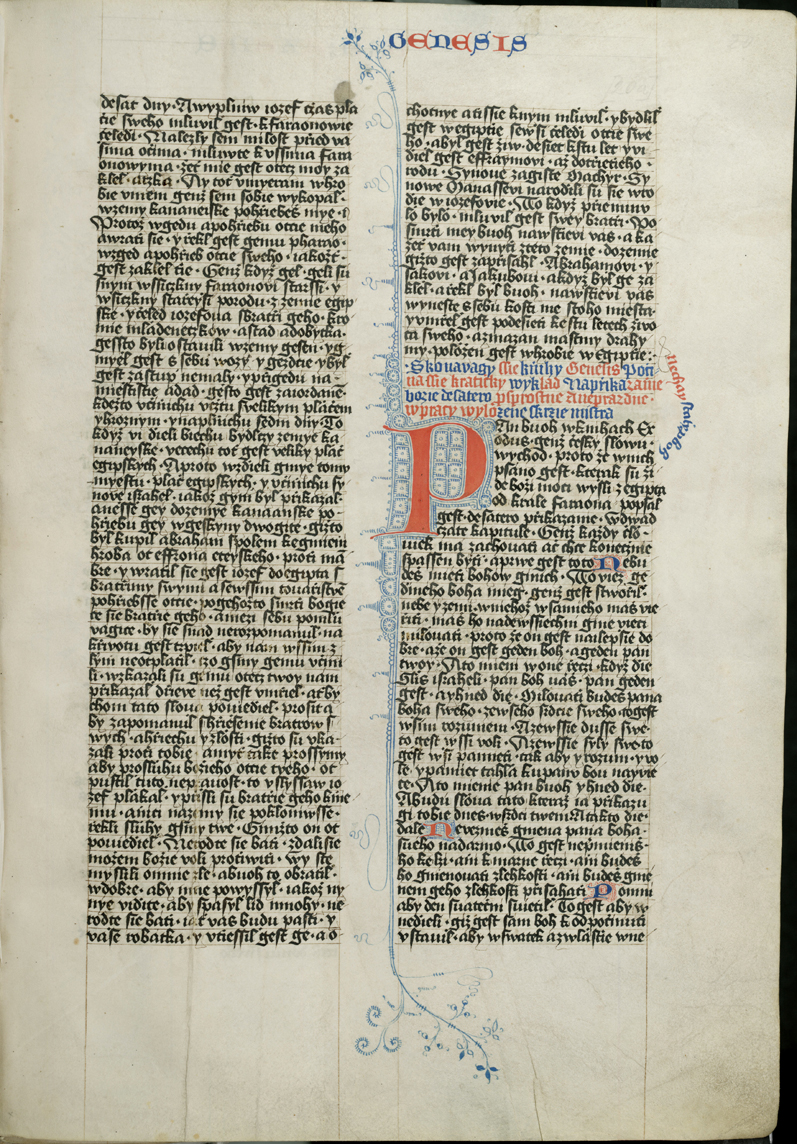 GENESIS
desat dny · A wyplniw iozef czas pla
cze sweho mluwil gest · k faraonowie
czeledi · Nalezly sem milost przed va
sima oczima · mluwte k vssima fara
onowyma · zet mie gest otecz moy za
klel · arzka · Ay tot vmyeram w hro
bie mem genz sem sobie wykopal ·
w zemy kananeiske pohrzebes mye · i
Protoz w gedu a pohrzebu otcze meho
a wrati sie · y rzekl gest gemu pharao ·
w zged a pohrzeb otcze sweho · iakozt ·
gest zaklel tie · Genz kdyz gel · geli su
s nym wssiczkny faraonovi starssi · y
wssiczkny starssy porodu · z zemie egip
ske · y czeled iozefova s bratri geho · kro
mie mladenetzkow · a stad a dobytka ·
gessto byli ostauili w zemy gessen · y g
myel gest s sebu wozy · y gezdcze · y byl
gest zastup nemaly · y przigedu na ·
miestistie adad · gesto gest za iordanē ·
kdezto vczinichu vcztu s velikym placzem
y hroznym · y naplnichu sedm dny · To
kdyz vidieli biechu bydlczy zemye ka
naneyske · rzechu tot gest veliky placz
egipskych · A proto w zdieli gmye tomu
myestu · placz egipskych · y vczinichu sy
nowe israhel · iakoz gym byl przikazal ·
a nessse gey do zemye kanaanske po ·
hrzebu gey w geskyny dwogite · gizto
byl kupil abraham s polem k egmiem
hroba ot effrona eteyskeho · proti mā
bre · y wratil sie gest iozef do egipta s
bratrzimy swymi a se wssim tovarzistwē
pohrzebsse otcze · po gehozto smrti bogie
cze sie bratrie geho · a mezi sebu pomlu
vagicze · by sie snad ne rozpomanul · na
krziwdu gest trpiel · aby nam wssim z
lym ne otplatil · czo gsmy gemu vczini
li · wzkazali su gemu otecz twoy nam
przikazal drzieve nez gest vmrzel · at by
chom tato slova powiedieli · prosit a
by zapomanul s hrziessenie bratrow s
wych · a hrziechu y zlosti · gizto su vka ·
zali proti tobie · a my t take prossymy
aby prosluhu bozieho otcze tveho · ot
pustil tuto nepravost · to vslyssaw io
zef plakal · y przissli su bratrie geho k nie
mu · a nici na zemy sie poklonywsse ·
rzekli sluhy gsmy twe · Gimzto on ot
powiediel · Nerodte sie bati · zdali sie
mozem bozie voli protiwiti · wy ste
myslili o mnie zle · a buoh to obratil ·
w dobre · aby mne powyssyl · iakoz ny
nye vidite · aby spasyl lid mnohy · ne
rodte sie bati · ia t vas budu pasti · y
vase robatka · y vtiessil gest ge · a o
chotnye a tissie k nym mluwil · y bydlil
gest w egiptie se wssi czeledi otcze swe
ho · a byl gest ziw · desiet k stu let · y vi
diel gest effraymovi · az do trzetieho ·
rodu · Synove zagiste Machyr · Sy
nowe Manassevi narodili su sie w to
die w iozefovie · A to kdyz przeminu
lo bylo · mluvil gest swey bratri · Po
smrti mey buoh nawstievi vas · a ka
zet vam wynyti z teto zemie · do zemie
gizto gest zaprzisahl · Abrahamovi · y
isakovi · a Jakubovi · a kdyz byl ge za
klel · a rzekl byl buoh · nawstievi vas
wyneste s sebu kosti me s toho miesta ·
y vmrzel gest po desieti k e stu letech zivo
ta sweho · a zmazan mastmy drahy
my · polozen gest w hrobie w Egiptie :·
Skonavagy sie knihy Genesis Poczi
na sie kraticky wyklad Na przikazanie
bozie desatero p sprostne a ne przazdne ·
w pracy wylozene skrzie mistra
nechay stair pod
PAn buoh w knihach Ex
odus · genz czesky slowu ·
wychod · proto ze w nich
psano gest · kterak su zi
de bozi moci wyssli z egipta
od krale faraona popsal
gest desatero przikazanie · W dwad
czate kapitule · Genz kazdy czlo ·
wiek ma zachowati at chce konecznie
spassen byti · a prwe gest toto Nebu
des mieti bohow ginich · A to viez · ge
dineho boha mieg · genz gest stworzil
nebe y zemi · w niehoz w samieho mas vie
rziti · mas ho nadewssiechny gine vieci
milovati · proto ze on gest naylepsie do
bre · a ze on gest geden boh · a geden pan
twoy · A to mieni w one rzeczi · kdyz die
Slis israheli · pan boh vas · pan geden
gest · a yhned die · Milovati budes pana
boha sweho · ze wseho srdcze sweho to gest
wssim rozumem · A ze wssie dusse swe ·
to gest wssi voli · A ze wssie syly swe to
gest wssi pamieti · tak aby y rozum · y vo
le · y pamiet tahla k u panu bohu nayvie
cze · A to mienie pan buoh y hned die ·
A budu slova tato kteraz ia przikazu
gi tobie dnes w srdczi twem A takto die ·
dale Nevezmes gmena pana boha ·
sueho nadarmo · A to gest ne przimienis ·
ho ke lzi · ani k marne rzeczi · ani budes
ho gmenovati z lehkosti · ani budes gme
nem geho z lehkosti przisahati Pomni
aby den suateczni suietil · To gest aby w
nedieli · giz gest sam boh k odpoczinuti
vstavil · aby w swatek a zwlastie w ne